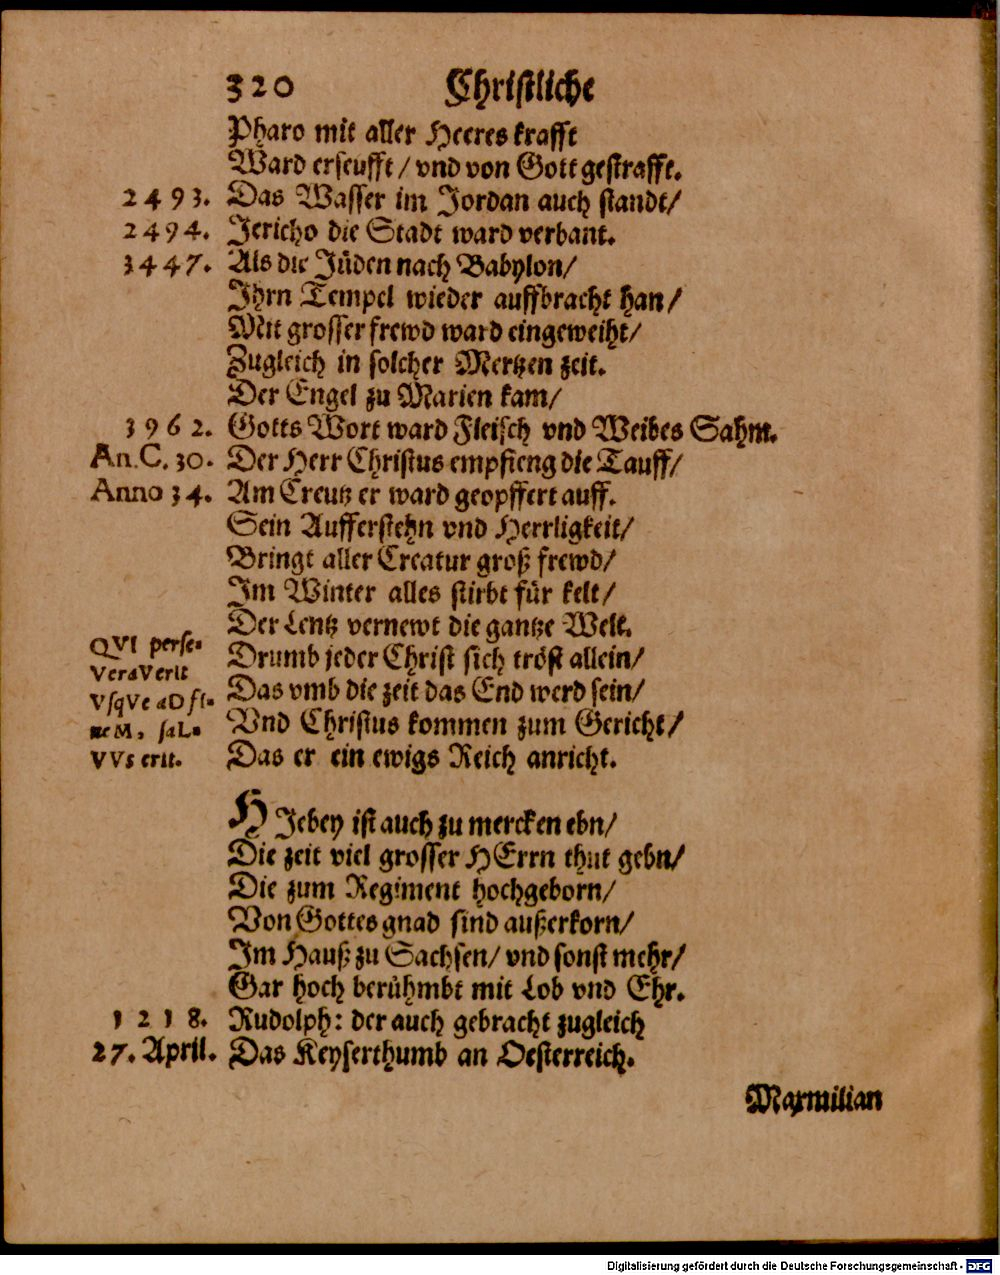 320 Christliche
Pharo mit aller Heeres krafft
Ward erseufft / vnd von Gott gestrafft.
2493. Das Wasser im Jordan auch standt/
2494. Jericho die Stadt ward verbant.
3447. Als die Jüden nach Babylon/
Ihrn Tempel wieder auffbracht han/
Mit grosser frewd ward eingeweiht/
Zugleich in solcher Mertzen zeit.
Der Engel zu Marien kam/
3962. Gotts Wort ward Fleisch vnd Weibes Sahm.
An. C. 30. Der Herr Christus empfieng die Tauff/
Anno 34. Am Creutz er ward geopffert auff.
Sein Aufferstehn vnd Herrligkeit/
Bringt aller Creatur groß frewd/
Im Winter alles stirbt für kelt/
Der Lentz vernewt die gantze Welt.
QVI perse-
VeraVerit
VsqVe aD fI-
neM, saL-
VVs erit.
Drumb jeder Christ sich tröst allein/
Das vmb die zeit das End werd sein/
Vnd Christus kommen zum Gericht/
Das er ein ewigs Reich anricht.
HIebey ist auch zu mercken ebn/
Die zeit viel grosser HErrn thut gebn/
Die zum Regiment hochgeborn/
Von Gottes gnad sind außerkorn/
Im Hauß zu Sachsen/ vnd sonst mehr/
Gar hoch berühmbt mit Lob vnd Ehr.
1218. Rudolph: der auch gebracht zugleich
27. April. Das Keyserthumb an Oesterreich.
Maxmilian
Digitalisierung gefördert durch die Deutsche Forschungsgemeinschaft - DFG